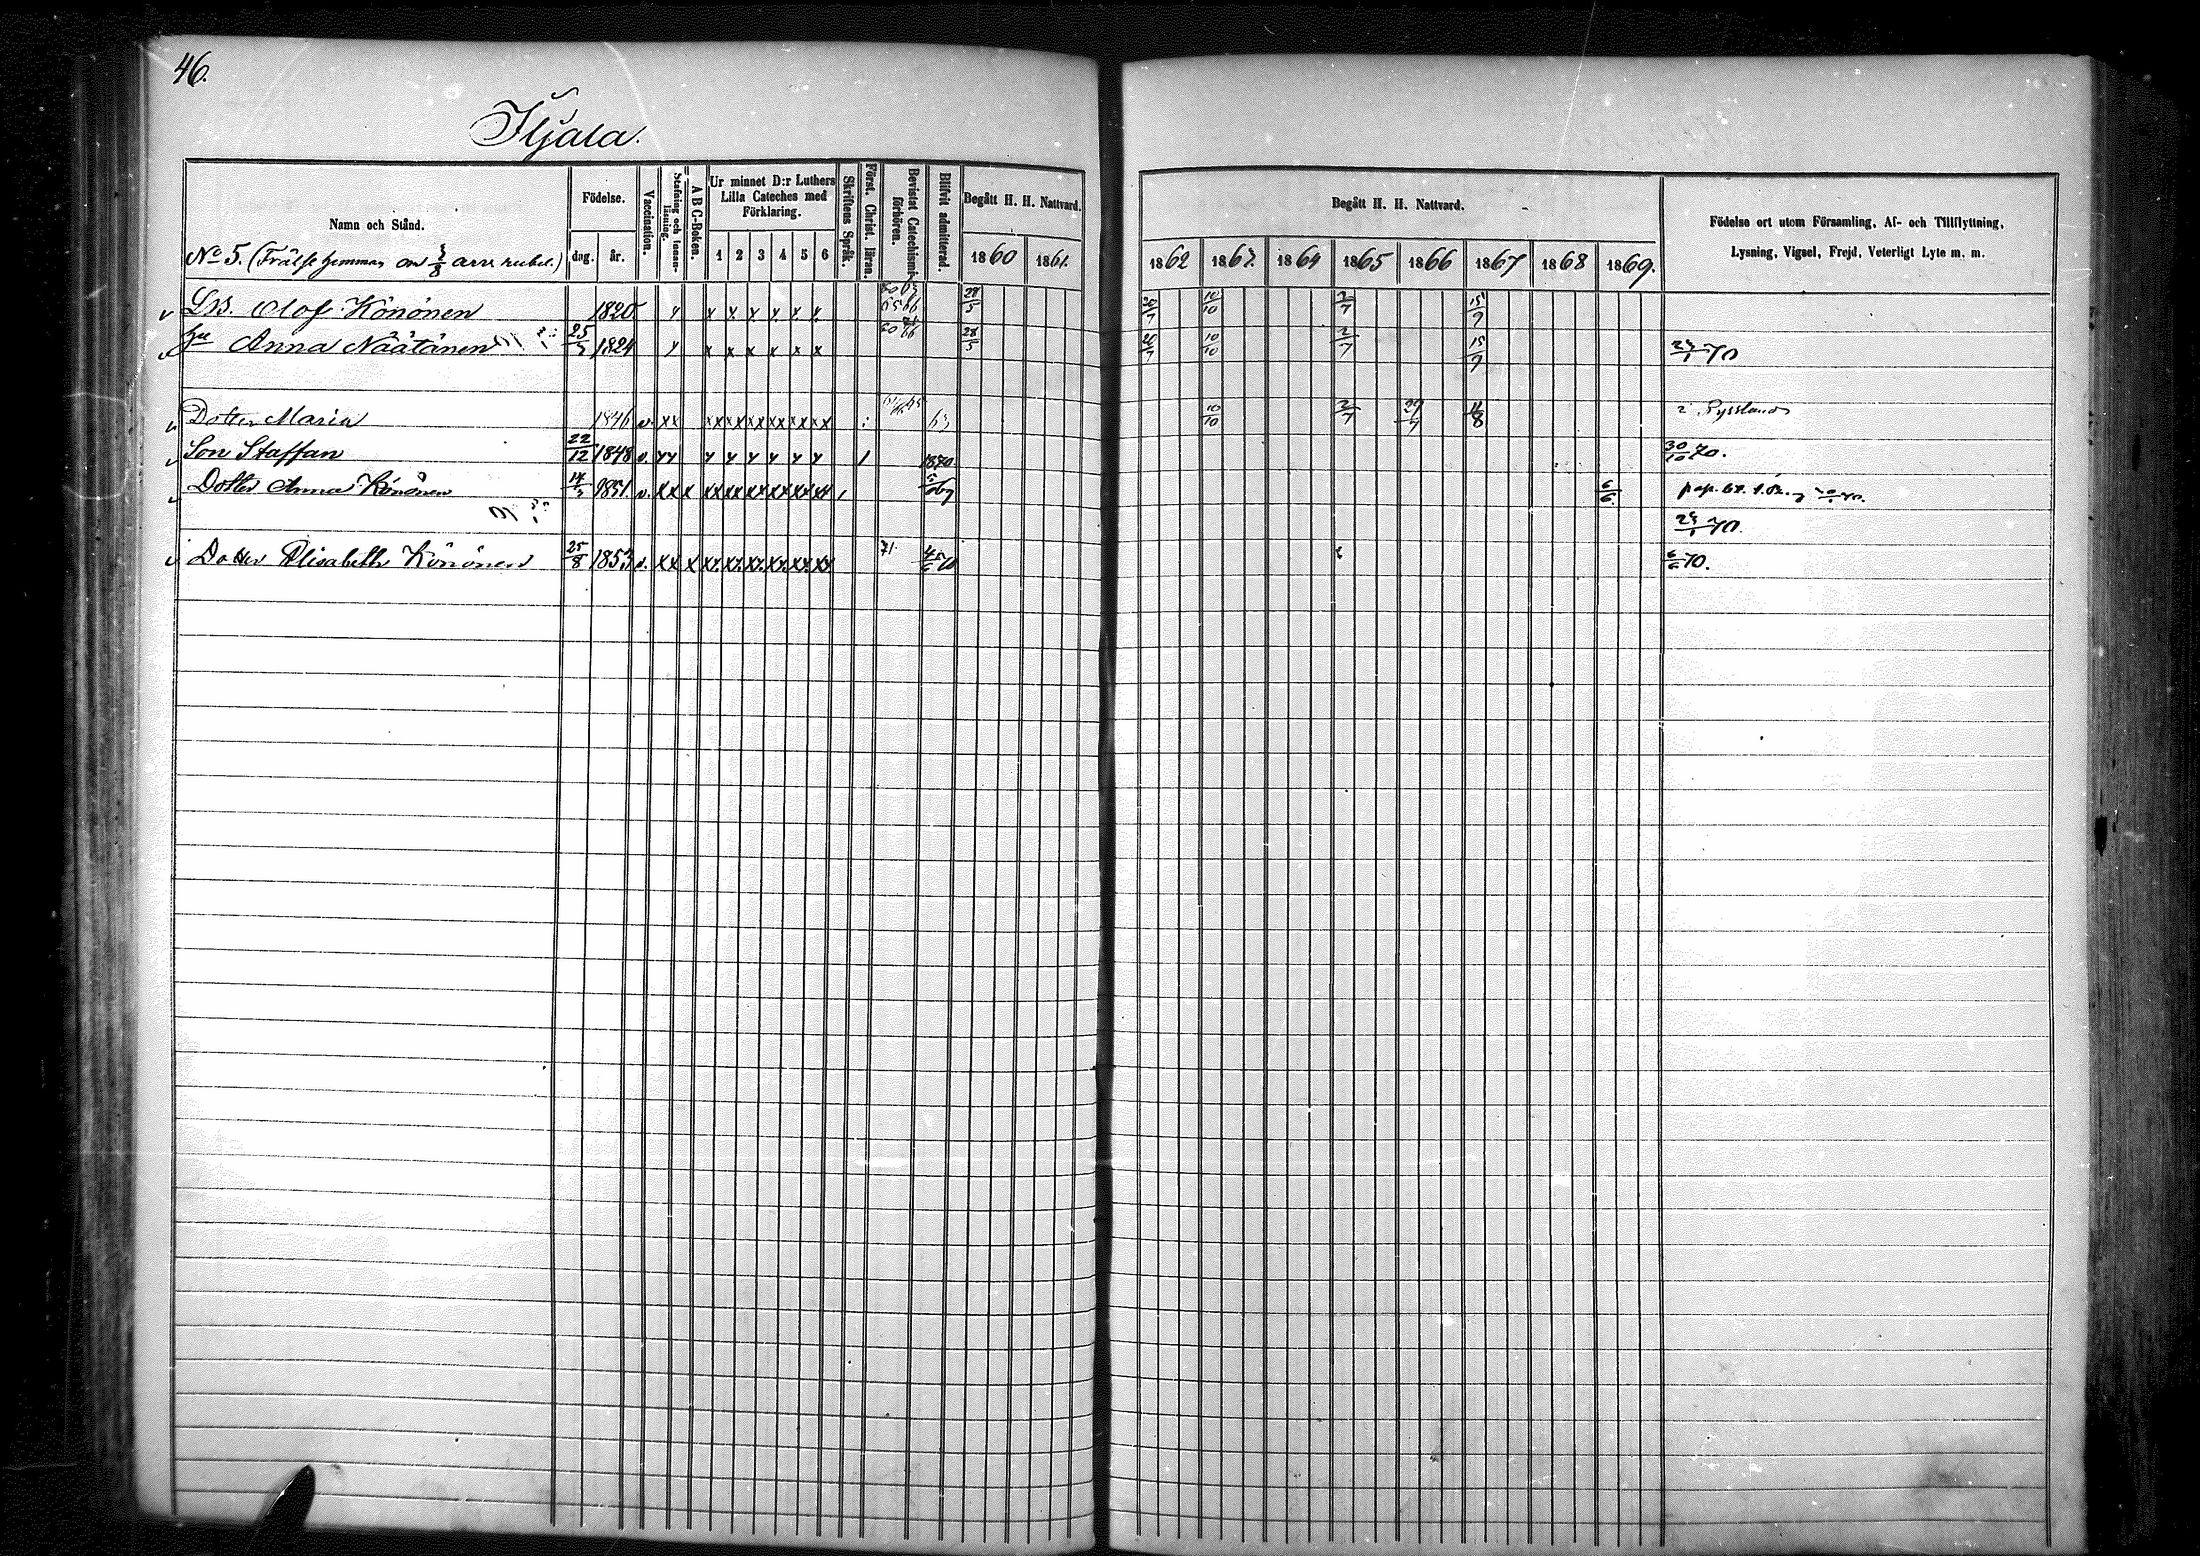 46.
Iljala.
Namn och Stånd.
Födelse.
dag. år.
Vaccination.
Stafning och Innan-läsning.
ABC-Boken.
Ur minnet D:r Luthers Lilla Cateches med Förklaring.
1 2 3 4 5 6
Skriftens Språk.
Först. Christ. läran.
Bevistat Catechismi-förhören.
Blifvit admitterad.
Begått H. H. Nattvard.
1860 1861.
Begått H. H. Nattvard.
1862 1863. 1864 1865 1866 1867 1868 1869.
Födelse ort utom Församling, Af- och Tillflyttning,
Lysning, Vigsel, Frejd, Veterligt Lyte m. m.
No 5. (Frälse hemman
Olof Könönen 1820 x x x x x x 28/5 20/7 10/10 2/7 15/9
Anna Näätänen 25/3 1824 x x x x x x 28/5 20/7 10/10 2/7 15/9
Dotter Maria 1846 v. xx xx xx xx xx xx xx 63 10/10 2/7 29/7 8 i Ryssland
Son Staffan 22/12 1848 v. 1870. 30/10 70.
Dotter Anna Könönen 1851 v. xx x xx xx xx xx xx xx 6/6
70.
Dotter Elisabeth Könönen 25/8 1853 v. xx x xx xx xx xx xx xx 71. 6/6 70.